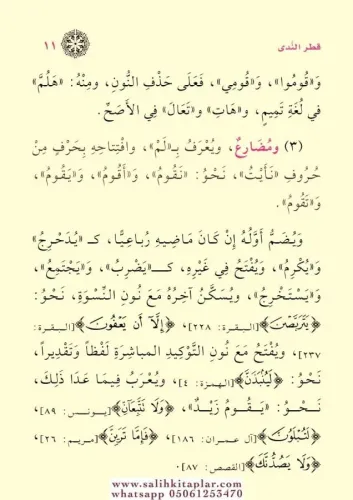 قطر النّدى ١١
وَ«قُومُوا»، وَ«قُومِي»، فَعَلَى حَذْفِ النُّونِ، ومِنْهُ: «هَلُمَّ»
في لُغَةِ تَمِيمٍ، و«هَاتِ» و«تَعَالَ» فِي الأَصَحِّ.
(٣) ومُضَارِعٌ، ويُعْرَفُ بـ«لَمْ»، وافْتِتاحِهِ بِحَرْفٍ مِنْ
حُرُوفِ «نَأَيْتُ»، نَحْوُ: «نَقُومُ»، و«أَقُومُ»، و«يَقُومُ»،
وَ«تَقُومُ».
وَيُضَمُّ أَوَّلُهُ إِنْ كَانَ مَاضِيهِ رُباعِيًّا، كـ «يُدَحْرِجُ»
و«يُكْرِمُ»، ويُفْتَحُ فِي غَيْرِهِ، كـ«يَضْرِبُ»، وَ«يَجْتَمِعُ»،
وَ«يَسْتَخْرِجُ»، ويُسَكَّنُ آخِرُهُ مَعَ نُونِ النِّسْوَةِ، نَحْوُ:
﴿يَتَرَبَّصْنَ﴾[البقرة: ٢٢٨]، ﴿إِلَّآ أَن يَعْفُونَ﴾[البقرة:
٢٣٧]، ويُفْتَحُ مَعَ نُونِ التَّوْكِيدِ المباشِرَةِ لَفْظاً وَتَقْدِيراً،
نَحْوُ: ﴿لَيُنۢبَذَنَّ﴾[الهمزة: ٤]، ويُعْرَبُ فِيمَا عَدَا ذَلِكَ،
نَحْوُ: «يَقُومُ زَيْدٌ»، ﴿وَلَا نَتَّبِعَآنِّ﴾[يونس: ٨٩]،
﴿لَتُبْلَوُنَّ﴾[آل عمران: ١٨٦]، ﴿فَإِمَّا تَرَيِنَّ﴾[مريم: ٢٦]،
﴿وَلَا يَصُدُّنَّكَ﴾[القصص: ٨٧].
www.salihkitaplar.com
whatsapp 05061253470